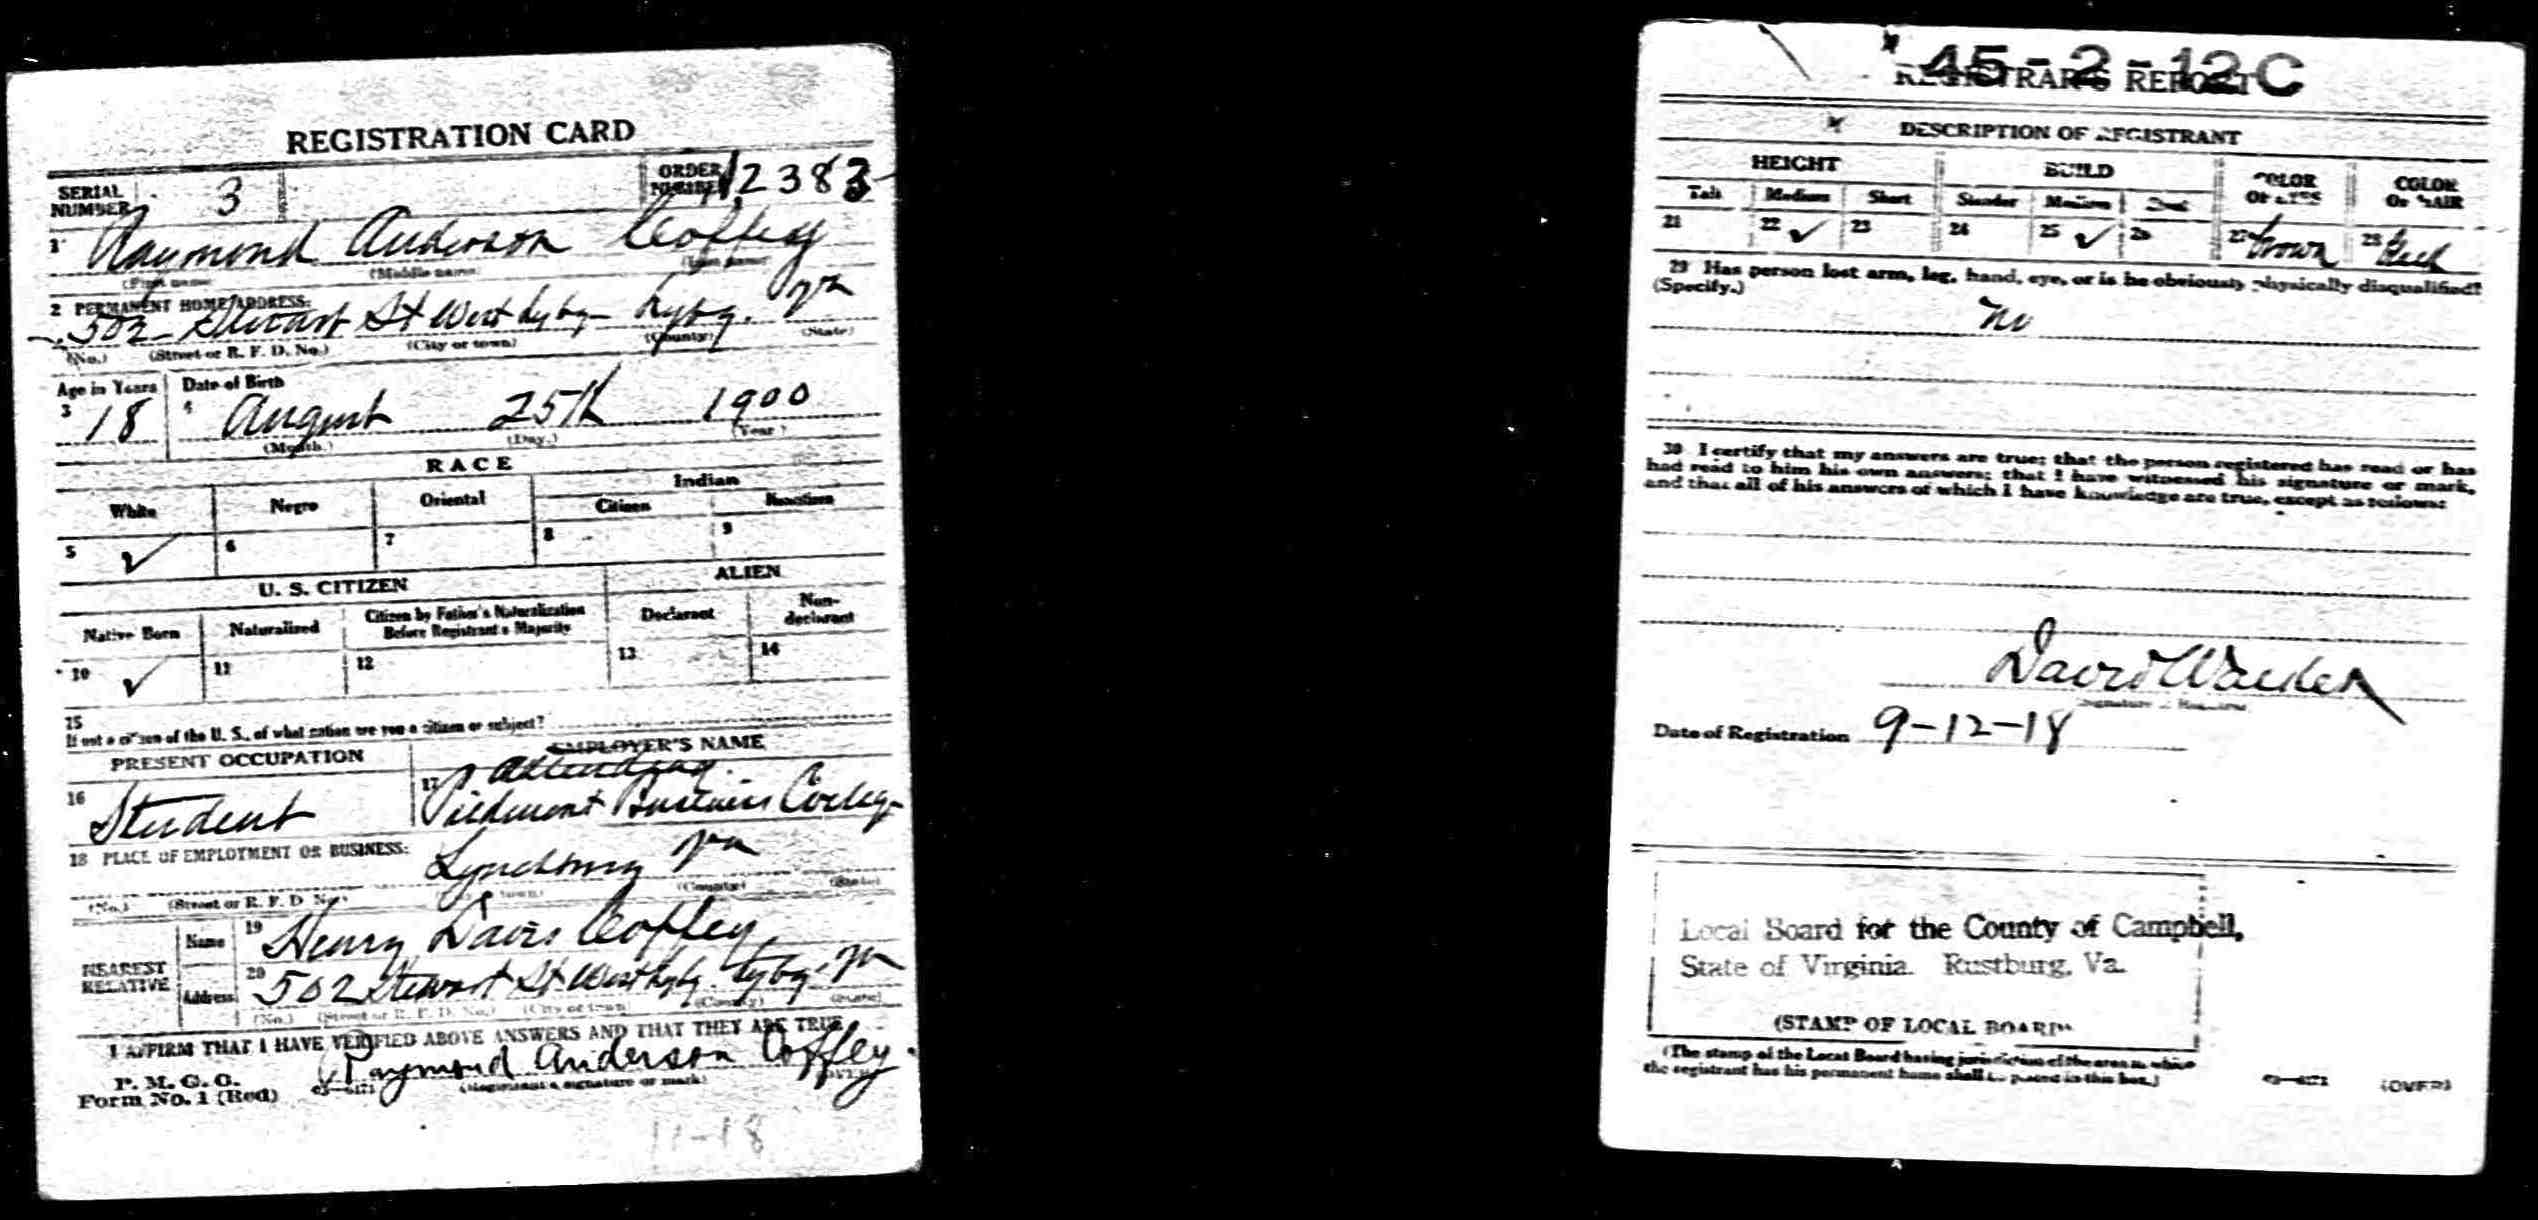 REGISTRATION CARD
SERIAL NUMBER 3 ORDER NUMBER 12383
1 Raymond Anderson Coffey
(First name) (Middle name) (Last name)
2 PERMANENT HOME ADDRESS:
502 Stewart St West Lybg Lybg. Va
(No.) (Street or R. F. D. No.) (City or town) (County) (State)
Age in Years Date of Birth
3 18 4 August 25th 1900
(Month.) (Day.) (Year.)
RACE
White Negro Oriental Indian
Citizen Noncitizen
5 ✓ 6 7 8 9
U. S. CITIZEN ALIEN
Native Born Naturalized Citizen by Father's Naturalization Before Registrant's Majority Declarant Non-declarant
10 ✓ 11 12 13 14
15
If not a citizen of the U. S., of what nation are you a citizen or subject?
PRESENT OCCUPATION EMPLOYER'S NAME
16 Student 17 Attending
Piedmont Business College
18 PLACE OF EMPLOYMENT OR BUSINESS:
Lynchburg Va
(No.) (Street or R. F. D. No.) (City or town) (County) (State)
NEAREST RELATIVE
Name 19 Henry Davis Coffey
Address 20 502 Stewart St West Lybg. Lybg. Va
(No.) (Street or R. F. D. No.) (City or town) (County) (State)
I AFFIRM THAT I HAVE VERIFIED ABOVE ANSWERS AND THAT THEY ARE TRUE
P. M. G. O.
Form No. 1 (Red) Raymond Anderson Coffey
(Registrant's signature or mark) (OVER)
11-18
45-2-12C
REGISTRAR'S REPORT
DESCRIPTION OF REGISTRANT
HEIGHT BUILD COLOR OF EYES COLOR OF HAIR
Tall Medium Short Slender Medium Stout
21 22 ✓ 23 24 25 ✓ 26 27 Brown 28
29 Has person lost arm, leg, hand, eye, or is he obviously physically disqualified?
(Specify.)
No
30 I certify that my answers are true; that the person registered has read or has
had read to him his own answers; that I have witnessed his signature or mark,
and that all of his answers of which I have knowledge are true, except as follows:
David
Signature of Registrar
Date of Registration 9-12-18
Local Board for the County of Campbell,
State of Virginia. Rustburg, Va.
(STAMP OF LOCAL BOARD)
(The stamp of the Local Board having jurisdiction of the area in which
the registrant has his permanent home shall be placed in this box.)
(OVER)